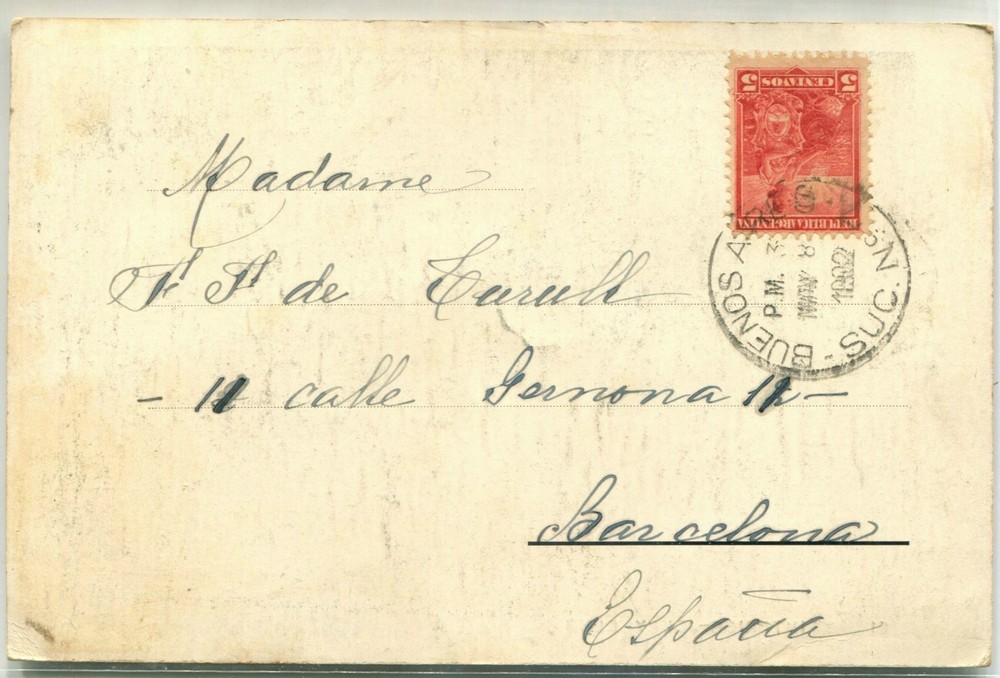 5 CENTAVOS 5
REPUBLICA ARGENTINA
BUENOS AIRES - SUC. N
P.M. 3
8
1902
Madame
de Turull
- 12 calle Gernona 12 -
Barcelona
España